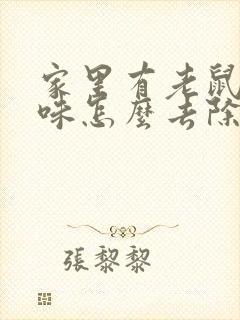 家里有老鼠
味怎麼去除
張黎黎